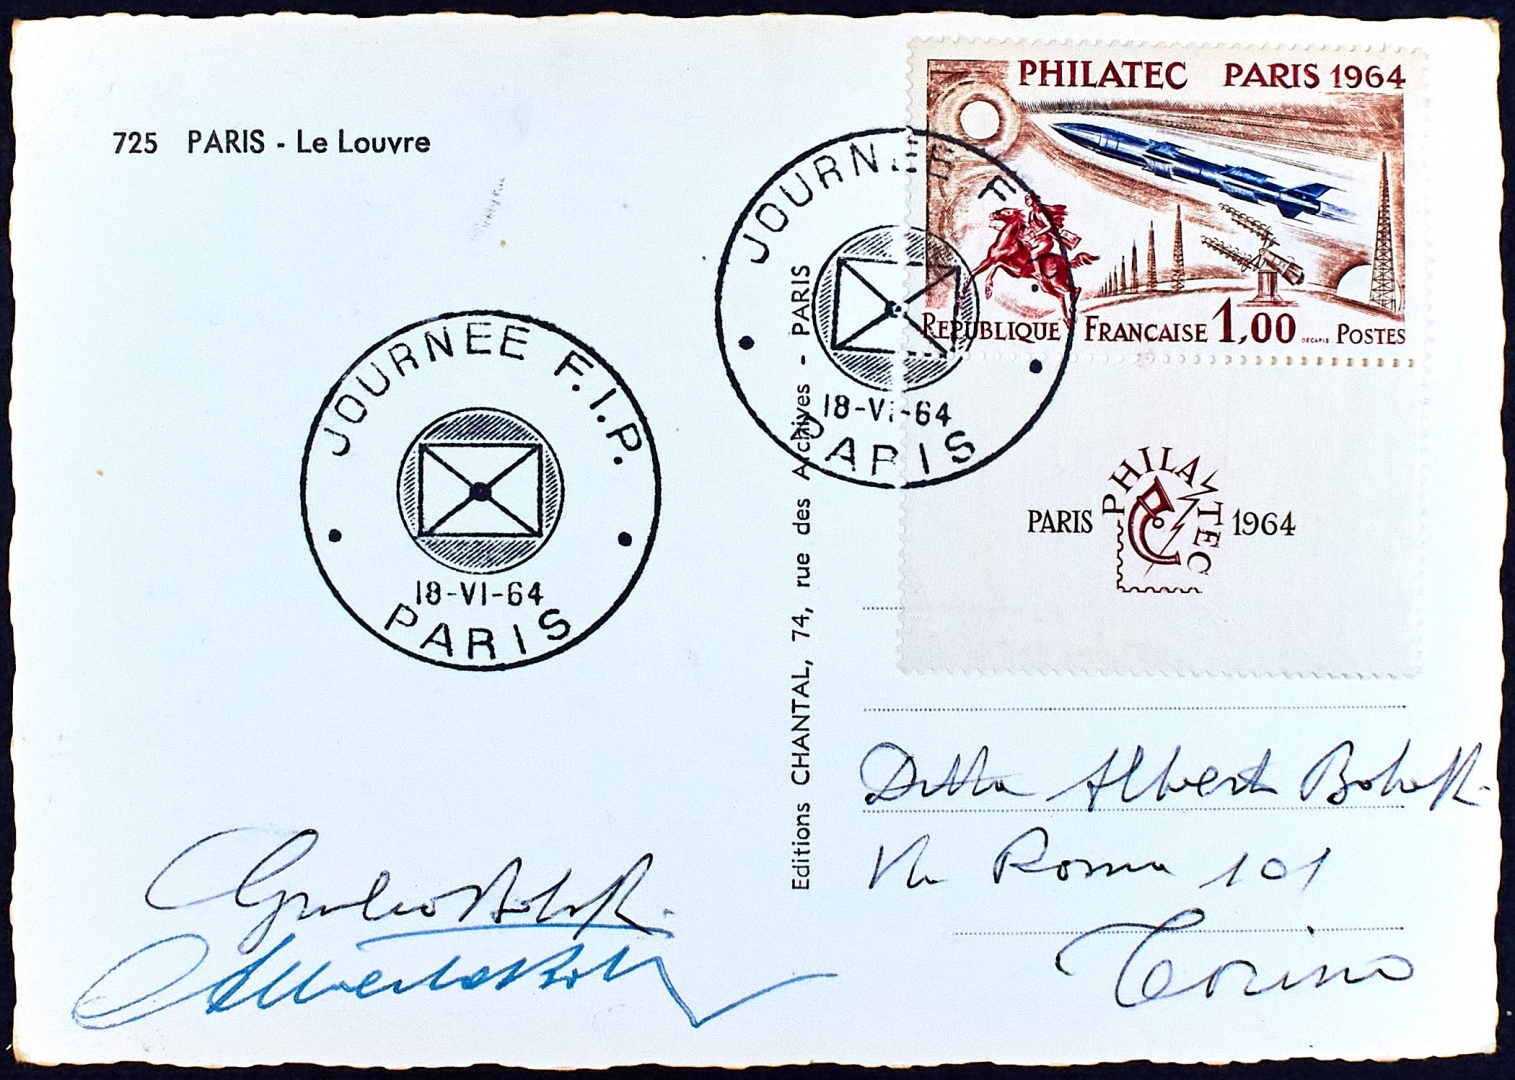 725 PARIS - Le Louvre
PHILATEC PARIS 1964
REPUBLIQUE FRANCAISE 1,00 DECARIS POSTES
JOURNEE F
18-VI-64
PARIS
JOURNEE F.I.P.
18-VI-64
PARIS
PARIS PHILATEC 1964
Editions CHANTAL, 74, rue des Archives - PARIS
Ditta Alberto Bolaffi
Via Roma 101
Torino
Giulio Bolaffi
Alberto Bolaffi